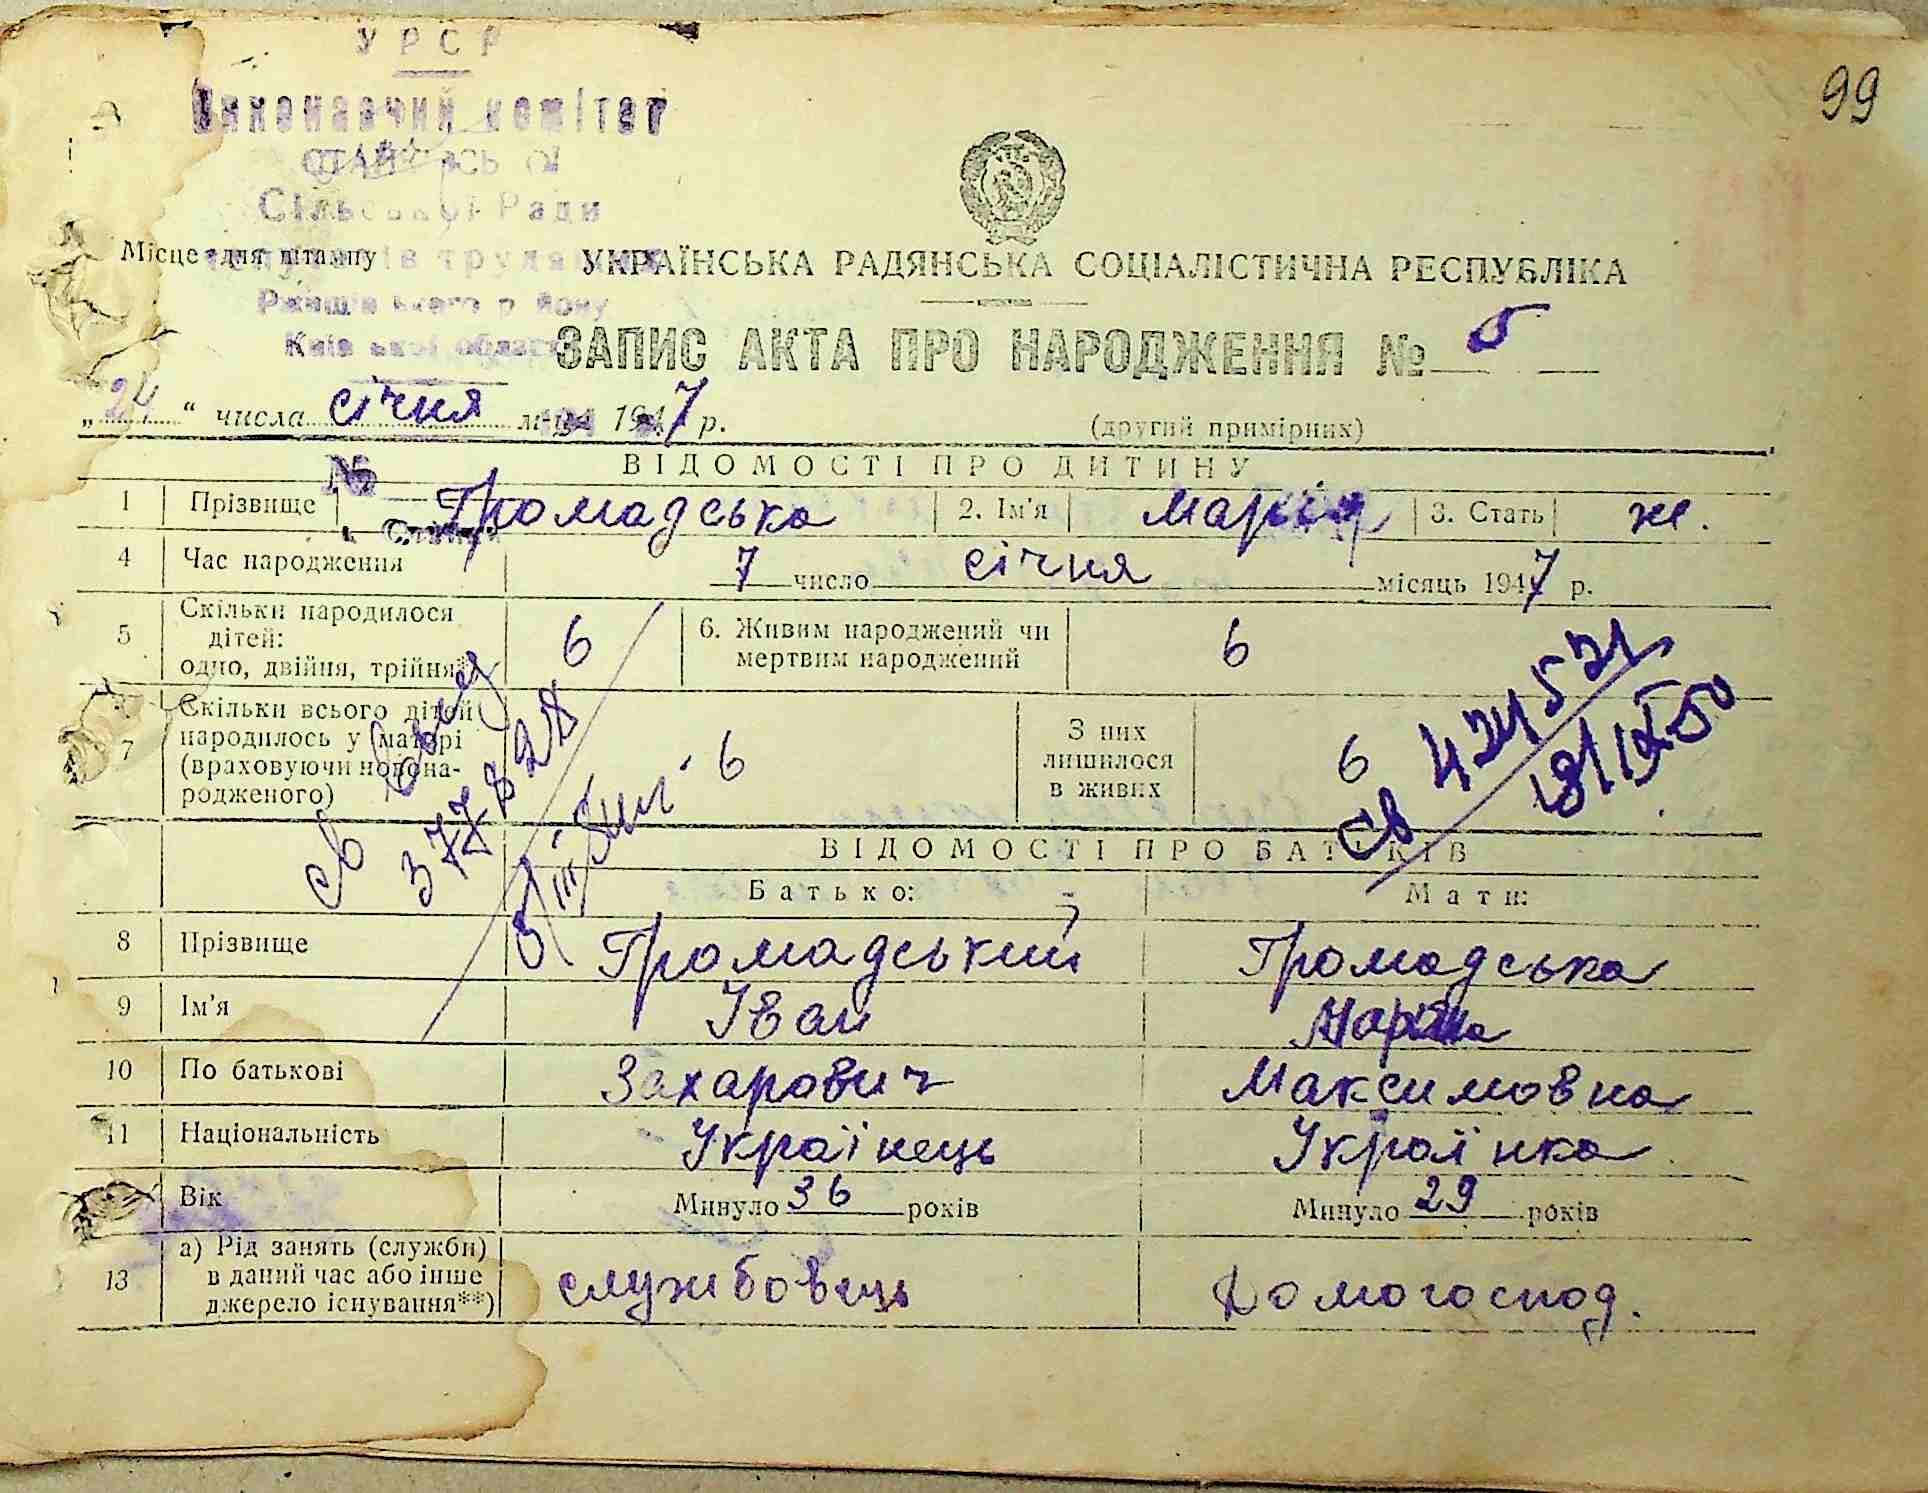 99
УРСР
Виконавчий комітет
Сільської Ради
Місце для штампу
УКРАЇНСЬКА РАДЯНСЬКА СОЦІАЛІСТИЧНА РЕСПУБЛІКА
ЗАПИС АКТА ПРО НАРОДЖЕННЯ №
„24“ числа січня 1947 р.
(другий примірник)
ВІДОМОСТІ ПРО ДИТИНУ
1 Прізвище Громадська 2. Ім'я Марія 3. Стать ж.
4 Час народження 7 число січня місяць 1947 р.
5 Скільки народилося дітей: одно, двійня, трійня*) 6 6. Живим народжений чи мертвим народжений 6
7 Скільки всього дітей народилось у матері (враховуючи новонародженого) 6 З них лишилося в живих 6
св 377828
св 424521
ВІДОМОСТІ ПРО БАТЬКІВ
Батько: Мати:
8 Прізвище Громадський Громадська
9 Ім'я Іван
10 По батькові Захарович Максимовна
11 Національність Українець Українка
Вік Минуло 36 років Минуло 29 років
13 а) Рід занять (служби) в даний час або інше джерело існування**) службовець Домогоспод.